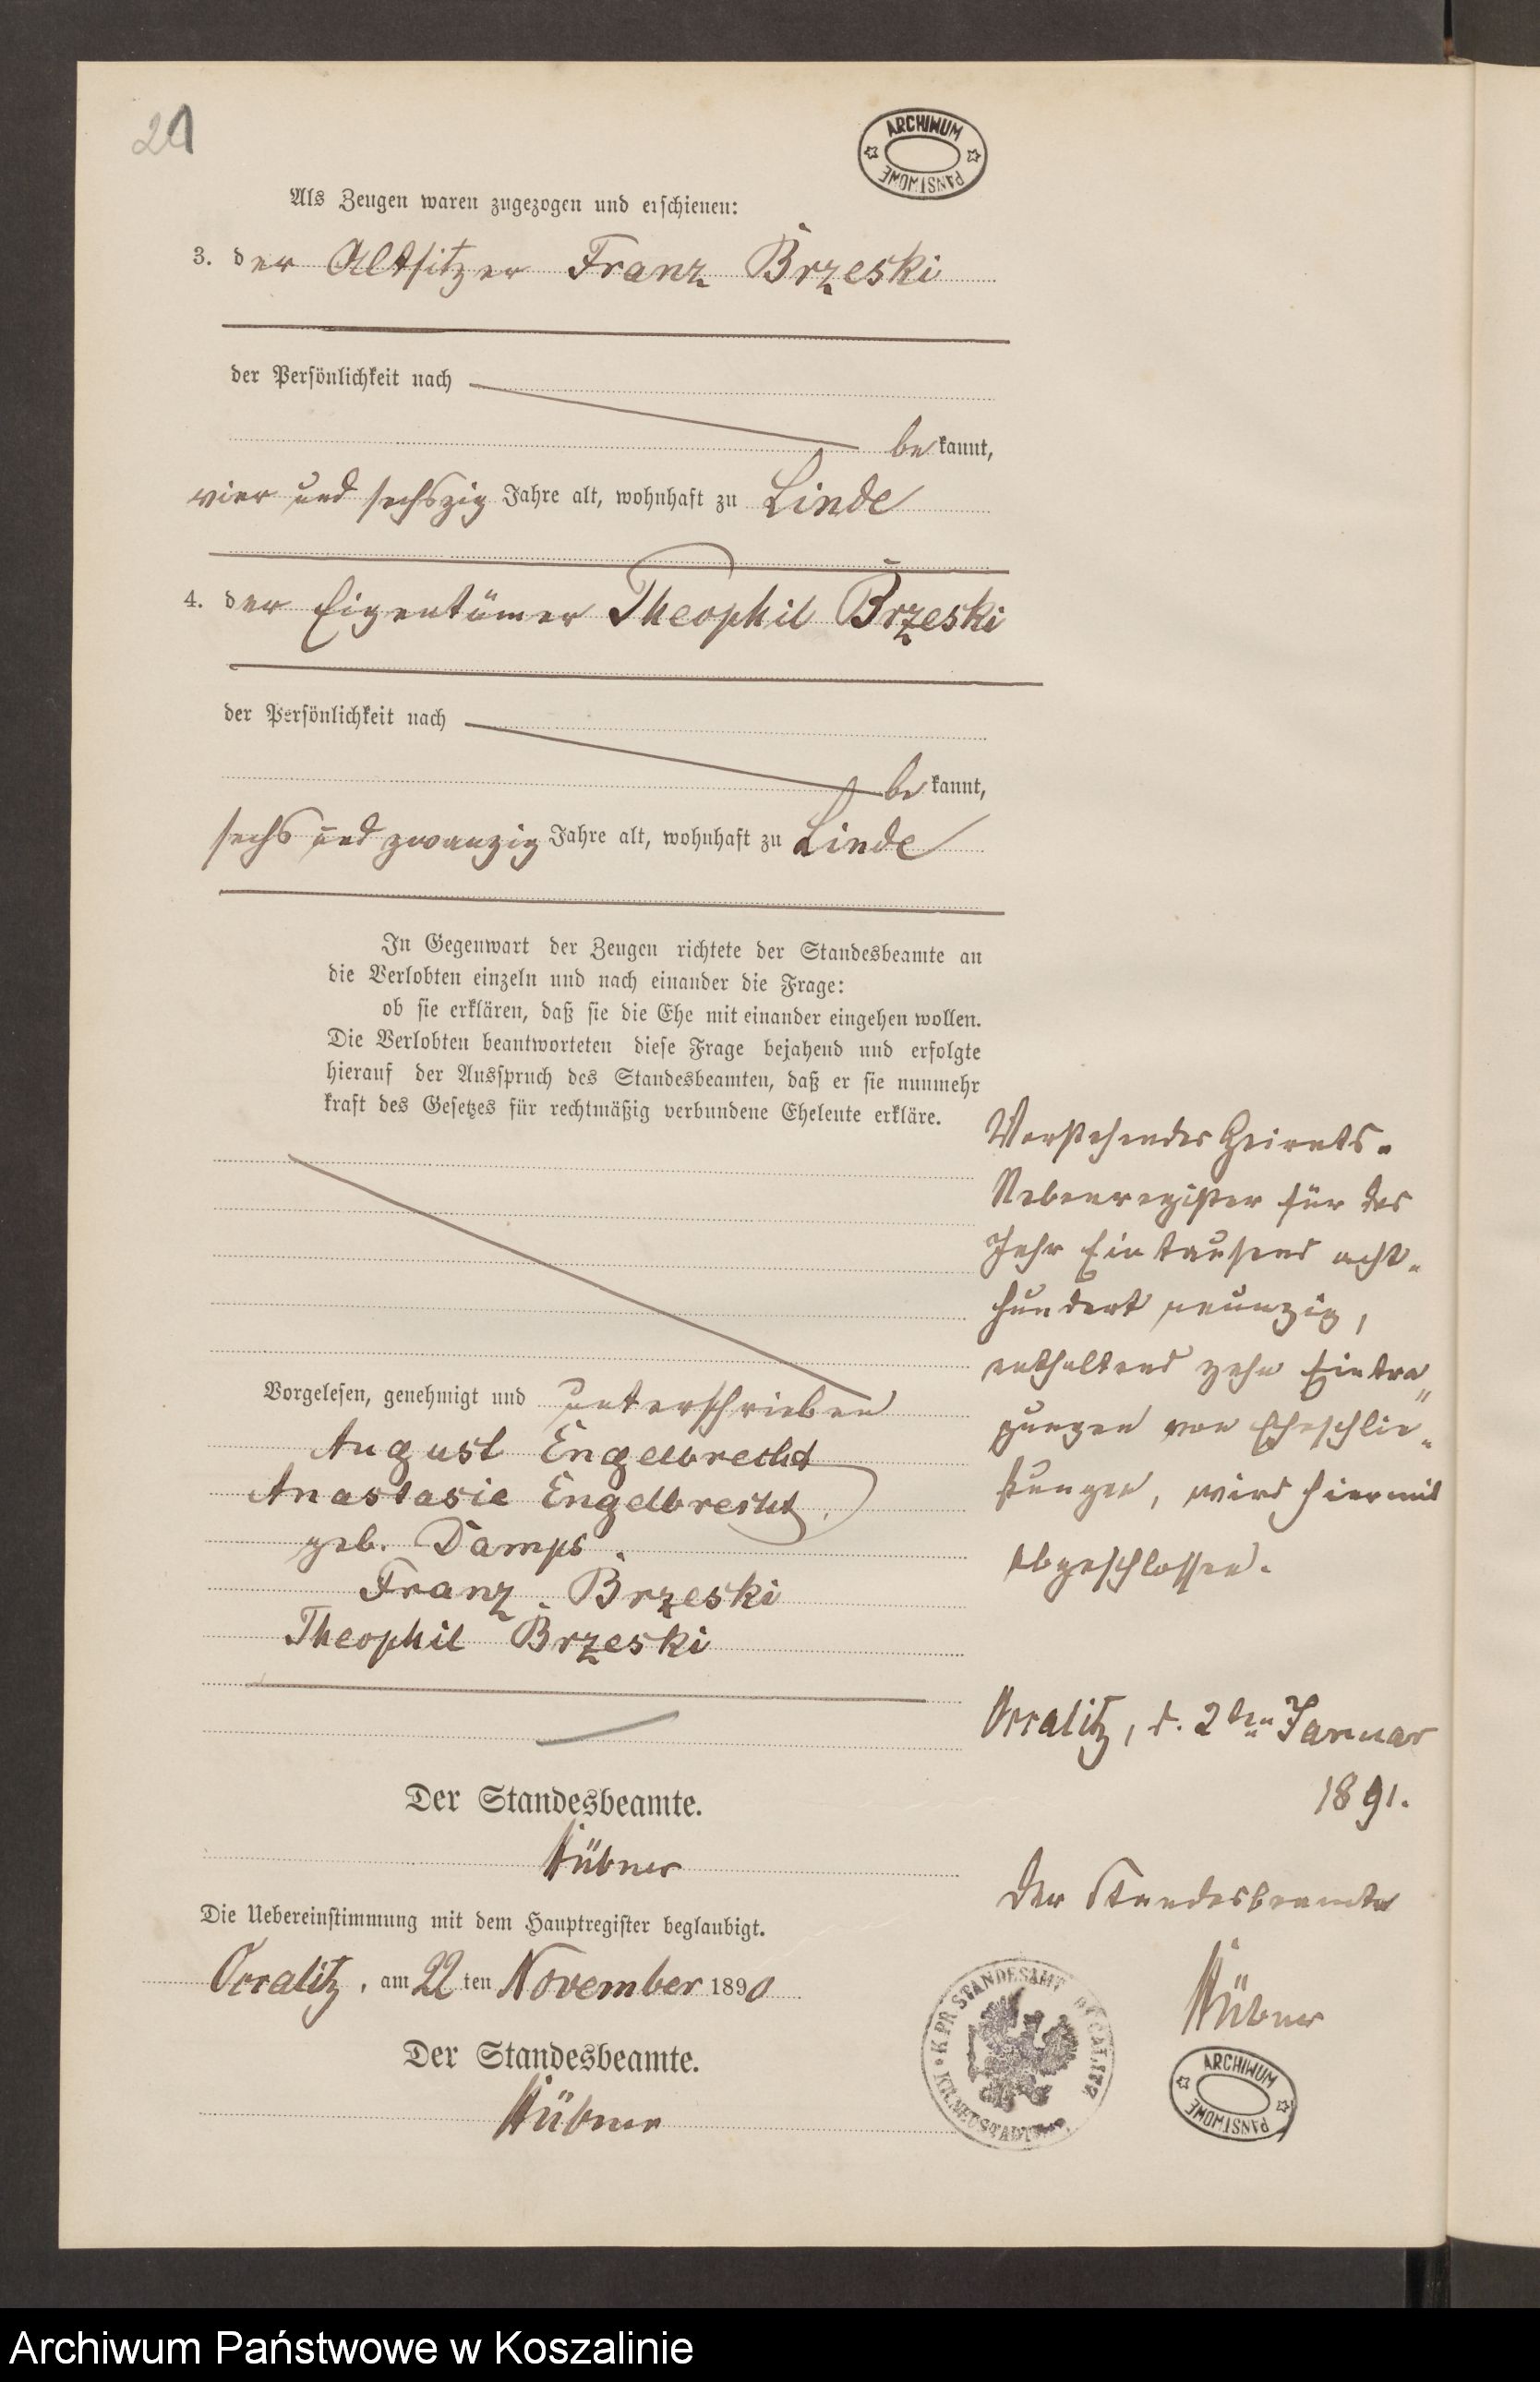 21
ARCHIWUM PAŃSTWOWE
Als Zeugen waren zugezogen und erschienen:
3. der Altsitzer Franz Brzeski
der Persönlichkeit nach
bekannt,
vier und sechszig Jahre alt, wohnhaft zu Linde
4. der Eigentümer Theophil Brzeski
der Persönlichkeit nach
bekannt,
sechs und zwanzig Jahre alt, wohnhaft zu Linde
In Gegenwart der Zeugen richtete der Standesbeamte an
die Verlobten einzeln und nach einander die Frage:
ob sie erklären, daß sie die Ehe mit einander eingehen wollen.
Die Verlobten beantworteten diese Frage bejahend und erfolgte
hierauf der Ausspruch des Standesbeamten, daß er sie nunmehr
kraft des Gesetzes für rechtmäßig verbundene Eheleute erkläre.
Vorgelesen, genehmigt und unterschrieben
August Engelbrecht
Anastasie Engelbrecht,
geb. Damps.
Franz Brzeski
Theophil Brzeski
Der Standesbeamte.
Hübner
Die Uebereinstimmung mit dem Hauptregister beglaubigt.
Occalitz, am 22 ten November 1890
Der Standesbeamte.
Hübner
Vorstehendes Heirats-
Nebenregister für das
Jahr Eintausend acht-
hundert neunzig,
enthaltend zehn Eintra-
gungen von Eheschlie-
ßungen, wird hiermit
abgeschlossen.
Occalitz, d. 2ten Januar
1891.
Der Standesbeamte
Hübner
K. PR. STANDESAMT OCCALITZ
KR. NEUSTADT
ARCHIWUM PAŃSTWOWE
Archiwum Państwowe w Koszalinie